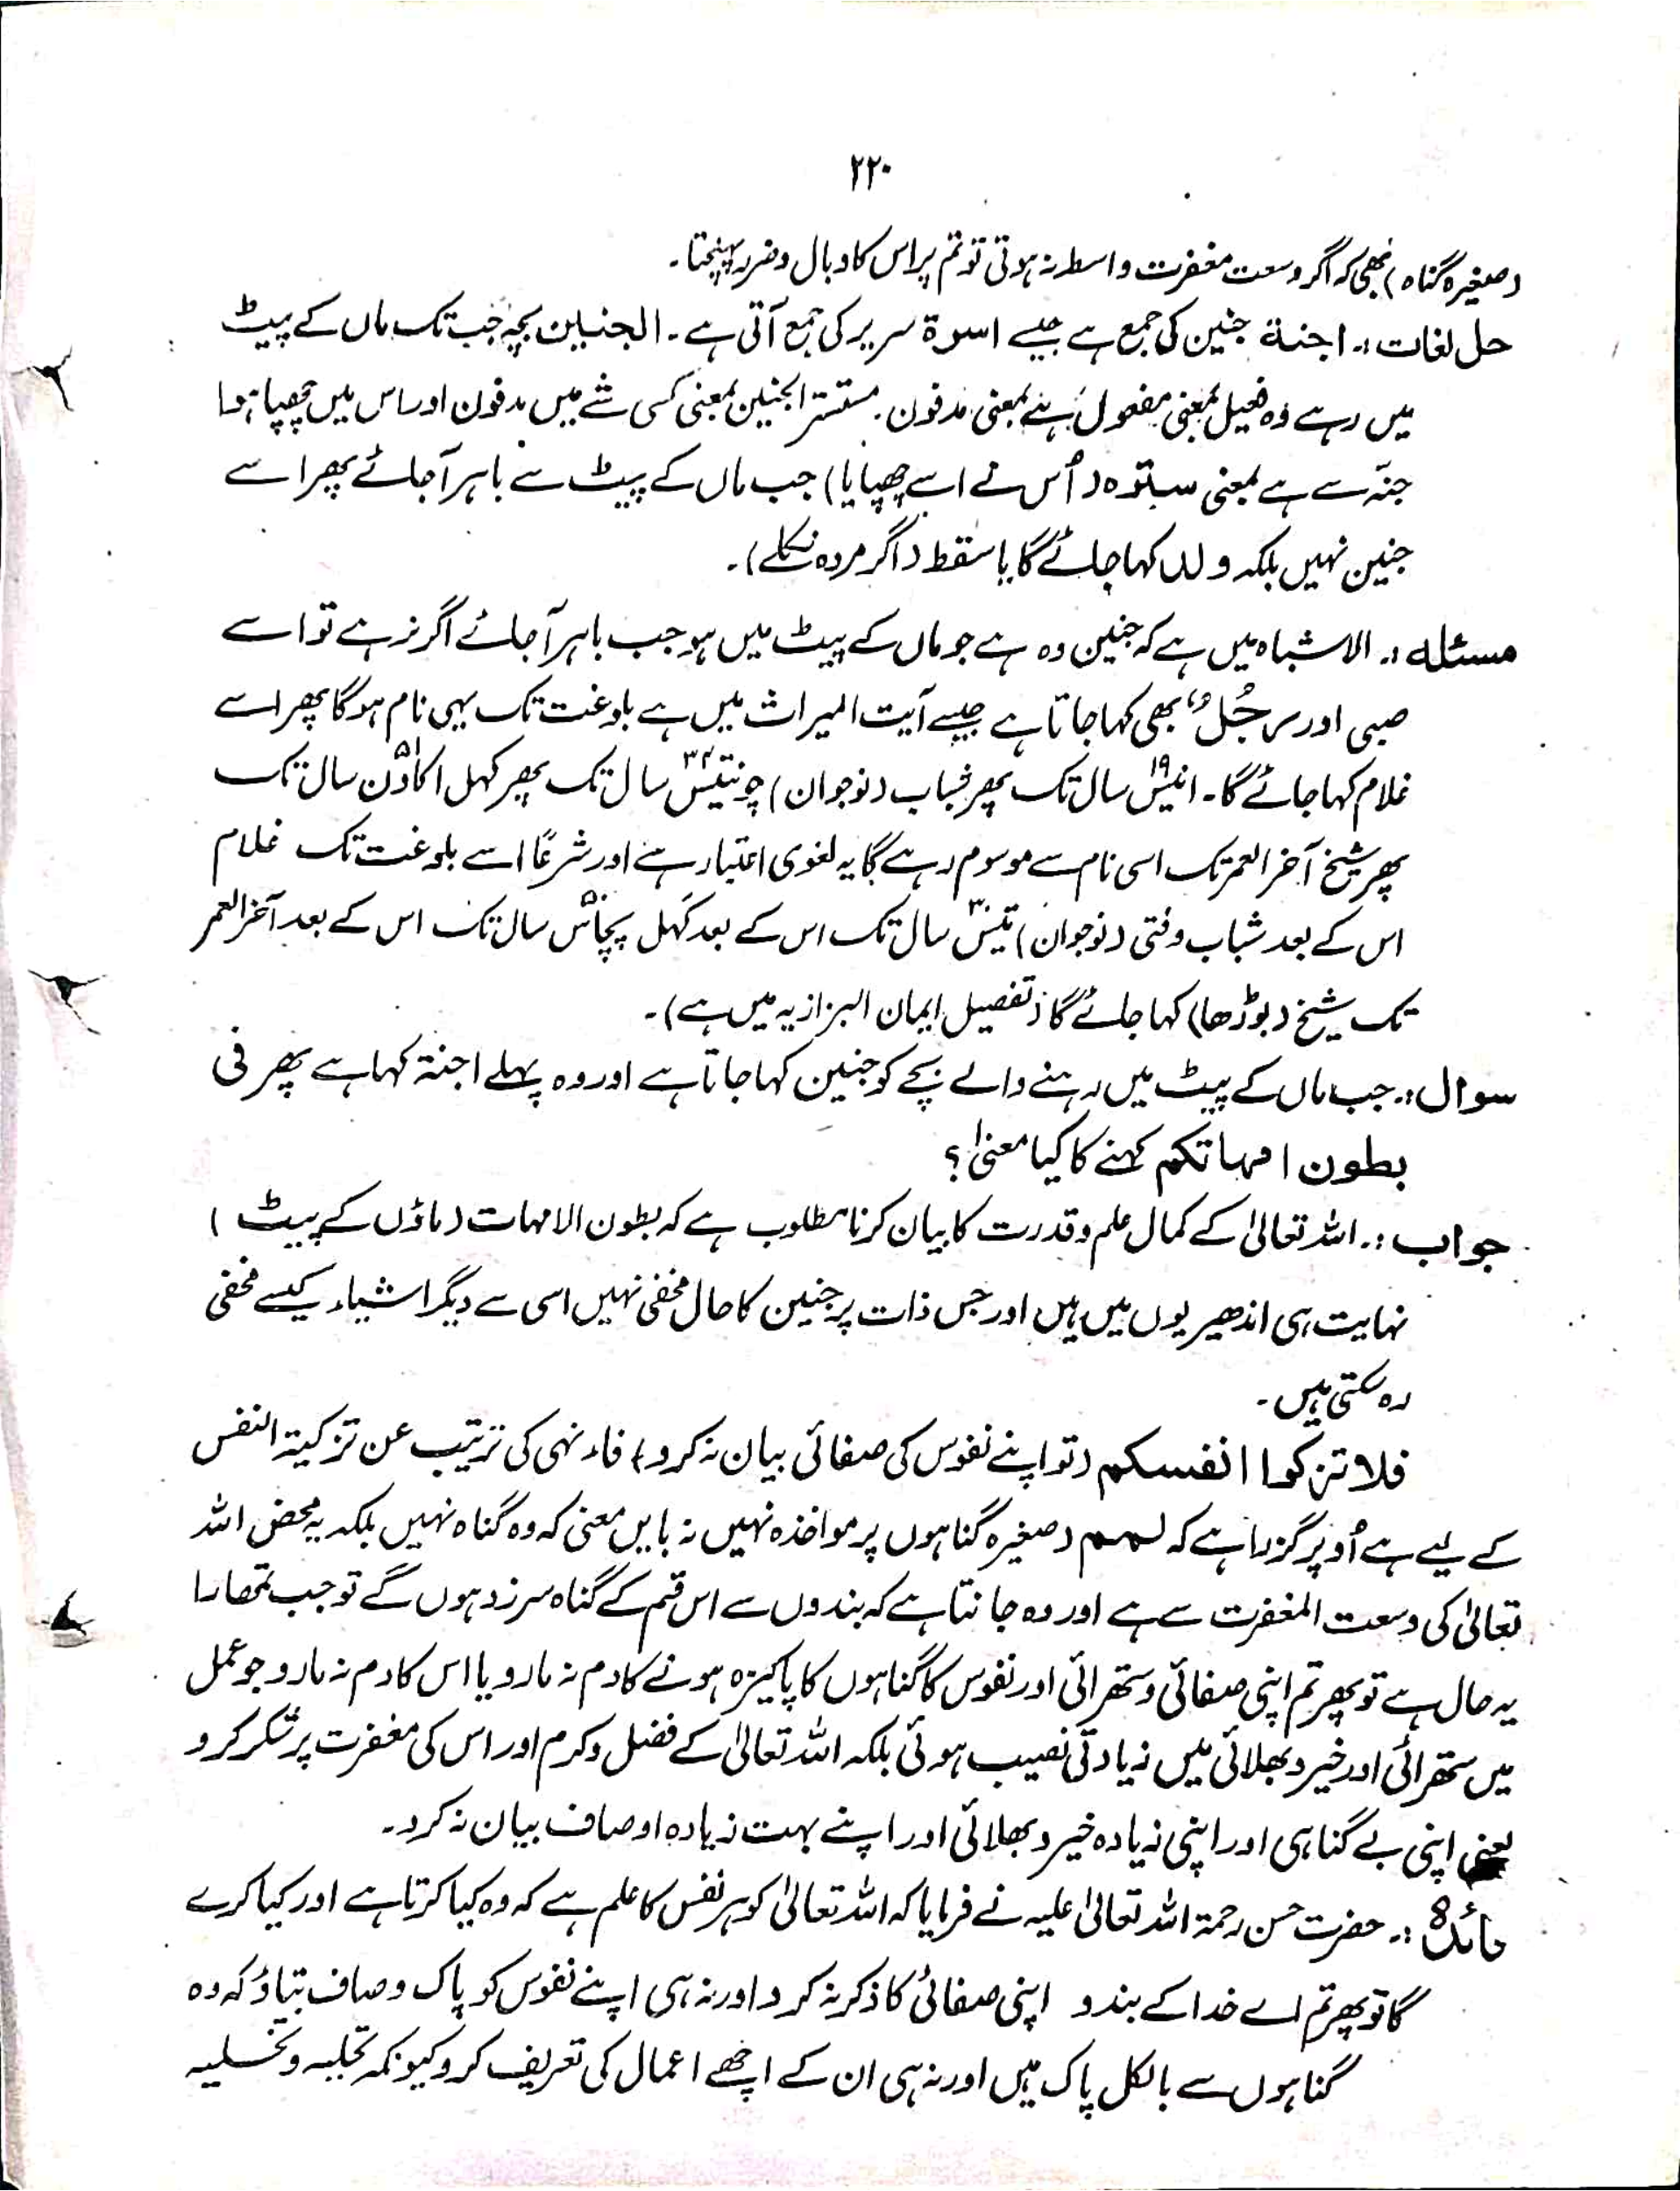 ۲۲۰
(صغیرہ گناہ) بھی کہ اگر وسعت مغفرت واسطہ نہ ہوتی تو تم پر اس کا وبال وضرر پہنچتا۔
حل لغات :۔ اجنۃ جنین کی جمع ہے جیسے اسرۃ سریر کی جمع آتی ہے۔ الجنین بچہ جب تک ماں کے پیٹ
میں رہے وہ فعیل بمعنی مفعول ہے بمعنی مدفون۔ مستتر الجنین بمعنی کسی شے میں مدفون اور اس میں چھپا ہوا
جنّہ سے ہے بمعنی سترہ (اُس نے اسے چھپایا) جب ماں کے پیٹ سے باہر آجائے پھر اسے
جنین نہیں بلکہ ولد کہا جائے گا یا سقط (اگر مردہ نکلے)۔
مسئلہ :۔ الاشباہ میں ہے کہ جنین وہ ہے جو ماں کے پیٹ میں ہو جب باہر آجائے اگر نر ہے تو اسے
صبی اور رجُلٌ بھی کہا جاتا ہے جیسے آیت المیراث میں ہے بلوغت تک یہی نام ہوگا پھر اسے
غلام کہا جائے گا۔ انیس ۱۹ سال تک پھر شباب (نوجوان) چونتیس ۳۴ سال تک پھر کہل اکاون ۵۱ سال تک
پھر شیخ آخر العمر تک اسی نام سے موسوم رہے گا یہ لغوی اعتبار ہے اور شرعًا اسے بلوغت تک غلام
اس کے بعد شباب وفتی (نوجوان) تیس ۳۰ سال تک اس کے بعد کہل پچاس ۵۰ سال تک اس کے بعد آخر العمر
تک شیخ (بوڑھا) کہا جائے گا (تفصیل ایمان البزازیہ میں ہے)۔
سوال :۔ جب ماں کے پیٹ میں رہنے والے بچے کو جنین کہا جاتا ہے اور وہ پہلے اجنۃ کہا ہے پھر فی
بطون امہاتکم کہنے کا کیا معنیٰ؟
جواب :۔ اللہ تعالیٰ کے کمال علم وقدرت کا بیان کرنا مطلوب ہے کہ بطون الامہات (ماؤں کے پیٹ)
نہایت ہی اندھیریوں میں ہیں اور جس ذات پر جنین کا حال مخفی نہیں اسی سے دیگر اشیاء کیسے مخفی
رہ سکتی ہیں۔
فلا تزکوا انفسکم (تو اپنے نفوس کی صفائی بیان نہ کرو) فاء نہی کی ترتیب عن تزکیۃ النفس
کے لیے ہے اُوپر گزرا ہے کہ لمم (صغیرہ گناہوں پر مواخذہ نہیں نہ بایں معنی کہ وہ گناہ نہیں بلکہ یہ محض اللہ
تعالیٰ کی وسعت المغفرت سے ہے اور وہ جانتا ہے کہ بندوں سے اس قسم کے گناہ سرزد ہوں گے تو جب تمھارا
یہ حال ہے تو پھر تم اپنی صفائی وستھرائی اور نفوس کا گناہوں کا پاکیزہ ہونے کا دم نہ مارو یا اس کا دم نہ مارو جو عمل
میں ستھرائی اور خیر وبھلائی میں زیادتی نصیب ہوئی بلکہ اللہ تعالیٰ کے فضل وکرم اور اس کی مغفرت پر شکر کرو
یعنی اپنی بے گناہی اور اپنی زیادہ خیر وبھلائی اور اپنے بہت زیادہ اوصاف بیان نہ کرو۔
فائدہ :۔ حضرت حسن رحمۃ اللہ تعالیٰ علیہ نے فرمایا کہ اللہ تعالیٰ کو ہر نفس کا علم ہے کہ وہ کیا کرتا ہے اور کیا کرے
گا تو پھر تم اے خدا کے بندو اپنی صفائی کا ذکر نہ کرو اور نہ ہی اپنے نفوس کو پاک وصاف بتاؤ کہ وہ
گناہوں سے بالکل پاک ہیں اور نہ ہی ان کے اچھے اعمال کی تعریف کرو کیونکہ تحلیہ وتخلیہ